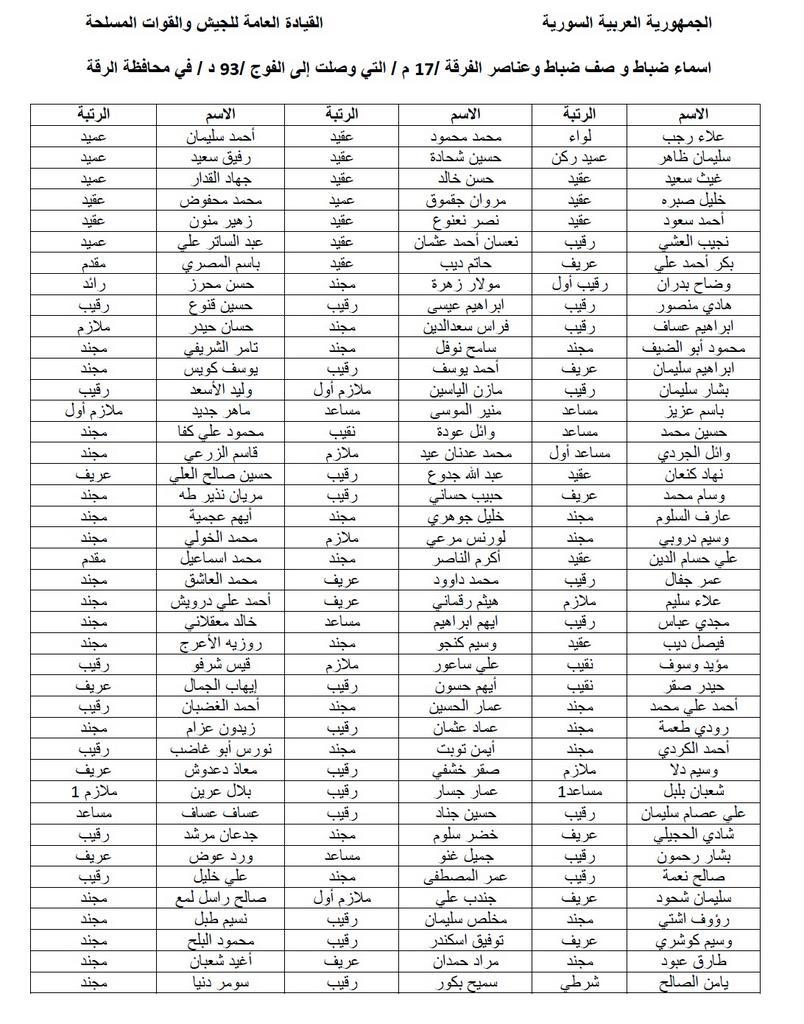 الجمهورية العربية السورية القيادة العامة للجيش والقوات المسلحة
اسماء ضباط و صف ضباط وعناصر الفرقة /17 م / التي وصلت إلى الفوج /93 د / في محافظة الرقة
الاسم الرتبة الاسم الرتبة الاسم الرتبة
علاء رجب لواء محمد محمود عقيد أحمد سليمان عميد
سليمان ظاهر عميد ركن حسين شحادة عقيد رفيق سعيد عميد
غيث سعيد عقيد حسن خالد عقيد جهاد القدار عميد
خليل صبره عقيد مروان جقموق عميد محمد محفوض عقيد
أحمد سعود عقيد نصر نعنوع عقيد زهير منون عقيد
نجيب العشي رقيب نعسان أحمد عثمان عقيد عبد الساتر علي عميد
بكر أحمد علي عريف حاتم ديب عقيد باسم المصري مقدم
وضاح بدران رقيب أول مولار زهرة مجند حسن محرز رائد
هادي منصور رقيب ابراهيم عيسى رقيب حسين قنوع رقيب
ابراهيم عساف رقيب فراس سعدالدين مجند حسان حيدر ملازم
محمود أبو الضيف مجند سامح نوفل مجند تامر الشريفي مجند
ابراهيم سليمان عريف أحمد يوسف رقيب يوسف كويس مجند
بشار سليمان رقيب مازن الياسين ملازم أول وليد الأسعد رقيب
باسم عزيز مساعد منير الموسى مساعد ماهر جديد ملازم أول
حسين محمد مساعد وائل عودة نقيب محمود علي كفا مجند
وائل الجردي مساعد أول محمد عدنان عيد ملازم قاسم الزرعي مجند
نهاد كنعان عقيد عبد الله جدوع رقيب حسين صالح العلي عريف
وسام محمد عريف حبيب حساني رقيب مريان نذير طه مجند
عارف السلوم مجند خليل جوهري مجند أيهم عجمية مجند
وسيم دروبي مجند لورنس مرعي ملازم محمد الخولي مجند
علي حسام الدين عقيد أكرم الناصر مجند محمد اسماعيل مقدم
عمر جفال رقيب محمد داوود عريف محمد العاشق مجند
علاء سليم ملازم هيثم رقماني عريف أحمد علي درويش مجند
مجدي عباس رقيب ايهم ابراهيم مساعد خالد معقلاني مجند
فيصل ديب عقيد وسيم كنجو مجند روزيه الأعرج مجند
مؤيد وسوف نقيب علي ساعور ملازم قيس شرفو رقيب
حيدر صقر نقيب أيهم حسون رقيب إيهاب الجمال عريف
أحمد علي محمد مجند عمار الحسين مجند أحمد الغضبان رقيب
رودي طعمة مجند عماد عثمان رقيب زيدون عزام مجند
أحمد الكردي مجند أيمن توبت مجند نورس أبو غاضب رقيب
وسيم دلا ملازم صقر خشفي رقيب معاذ دعدوش عريف
شعبان بلبل مساعد1 عمار جسار رقيب بلال عرين ملازم 1
علي عصام سليمان رقيب حسين جناد رقيب عساف عساف مساعد
شادي الحجيلي عريف خضر سلوم مجند جدعان مرشد رقيب
بشار رحمون رقيب جميل غنو مساعد ورد عوض عريف
صالح نعمة رقيب عمر المصطفى مجند علي خليل رقيب
سليمان شحود عريف جندب علي ملازم أول صالح راسل لمع مجند
رؤوف اشتي مجند مخلص سليمان رقيب نسيم طبل مجند
وسيم كوشري عريف توفيق اسكندر رقيب محمود البلح مجند
طارق عبود مجند مراد حمدان عريف أغيد شعبان مجند
يامن الصالح شرطي سميح بكور رقيب سومر دنيا مجند